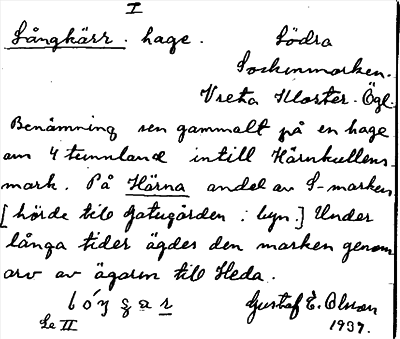 I
Långkärr. hage. Södra
Sockenmarken.
Vreta Kloster. Ögl.
Benämning sen gammalt på en hage
om 4 tunnland intill Härnkullens
mark. På Härna andel av S-marken
[hörde till Gatugården i byn.] Under
långa tider ägdes den marken genom
arv av ägaren till Heda.
Gustaf E. Olsson
Se II 1937.